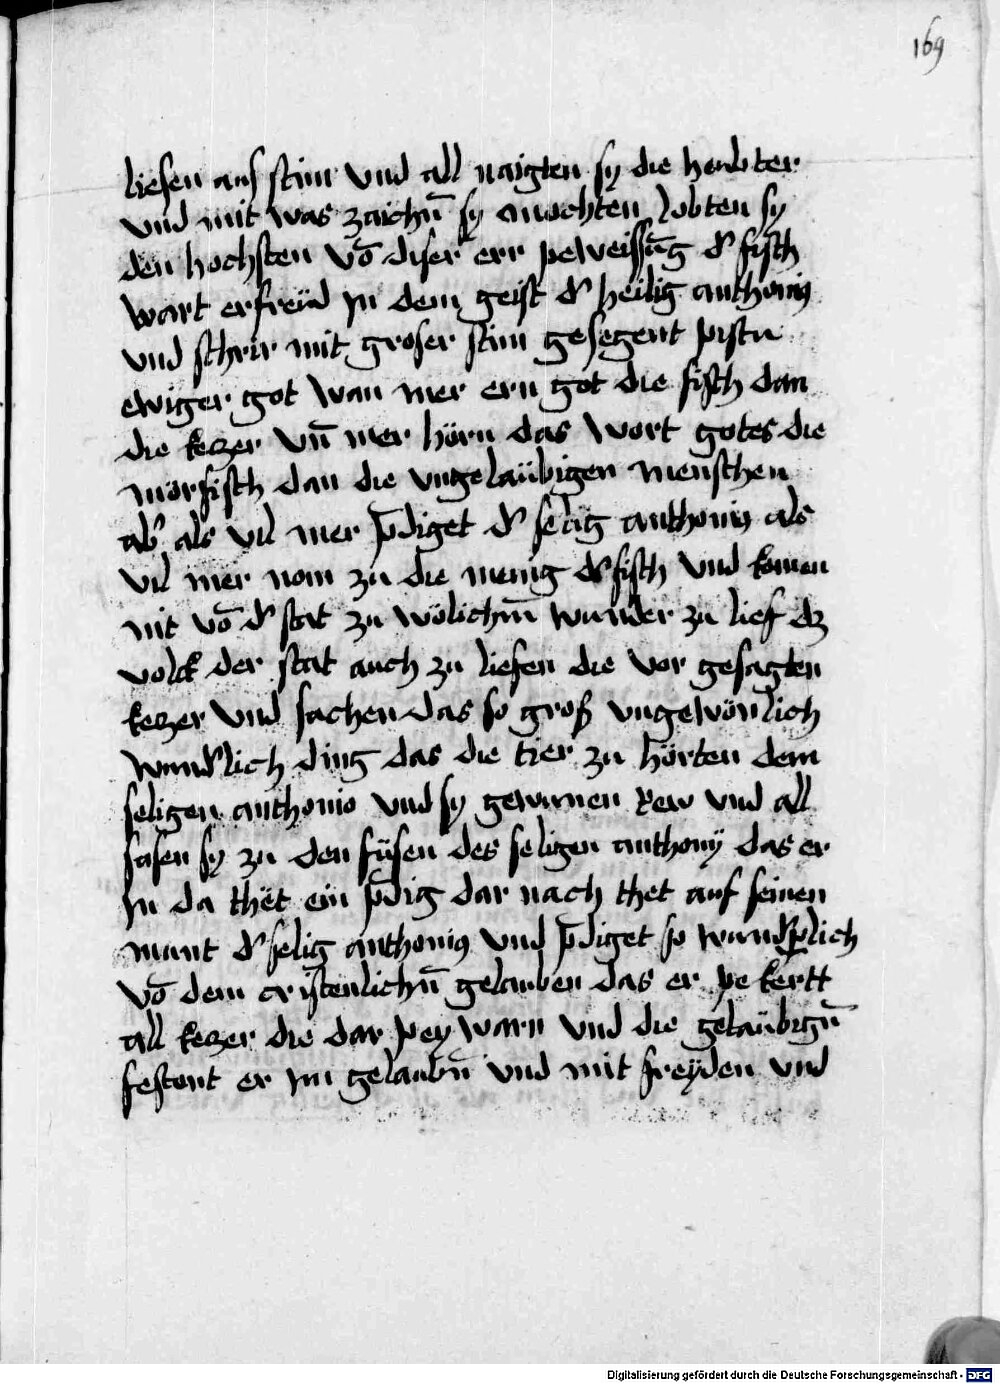 169
liesen auf stim vnd all naigten sy die heubter
vnd mit was zaichn̄ sy mochten lobten sy
den hochsten vō diser err peweissūg d᾽ fisch
wart erfreüd Jn dem geist d᾽ heilig anthonig
vnd schrir mit groser stim gesegent pistu
ewiger got wan mer ern got die fisch dan
die keczer vn̄ mer hörn das wort gotes die
mörfisch dan die vngeläübigen menschen
ab᾽ als vil mer p̄diget d᾽ selig anthonig als
vil mer nom zu die menig d᾽ fisch vnd komen
nit vō d᾽ stat zu wölichm̄ wunder zu lief dz
volck der stat auch zu liefen die vor gesagten
keczer vnd sachen das so groß vngewönlich
wund᾽lich ding das die tier zu hörten dem
seligen anthonio vnd sy gewunen Rew vnd all
sasen sy zu den füsen des seligen anthonÿ das er
Jn da thët ein p̄dig dar nach thet auf seinen
munt d᾽ selig anthonig vnd p̄diget so wund᾽lich
vō dem cristenlichn̄ gelauben das er pekertt
all keczer die dar pey warn vnd die geläübign̄
festent er Jm gelaubn̄ vnd mit freÿden vnd
Digitalisierung gefördert durch die Deutsche Forschungsgemeinschaft - DFG